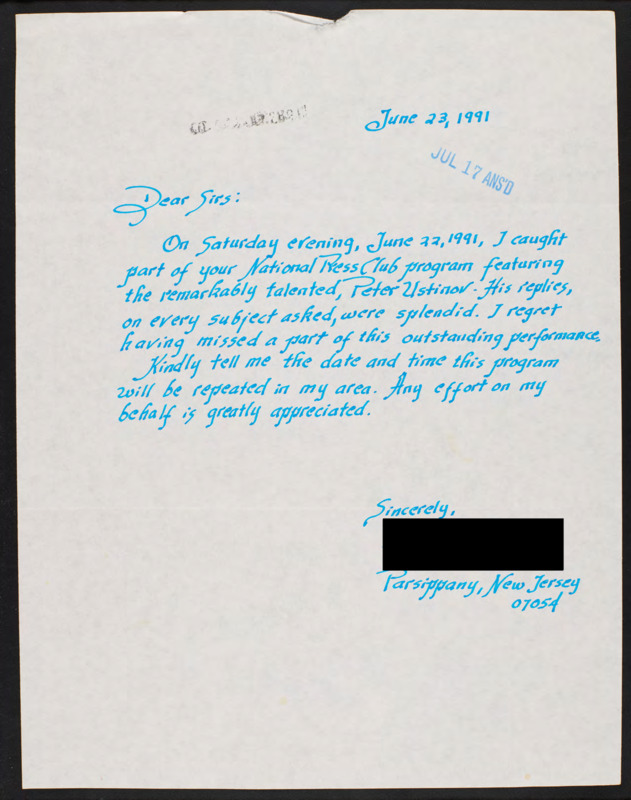 June 23, 1991
JUL 17 ANS'D
Dear Sirs:
On Saturday evening, June 22, 1991, I caught
part of your National Press Club program featuring
the remarkably talented, Peter Ustinov. His replies,
on every subject asked, were splendid. I regret
having missed a part of this outstanding performance.
Kindly tell me the date and time this program
will be repeated in my area. Any effort on my
behalf is greatly appreciated.
Sincerely,
Parsippany, New Jersey
07054